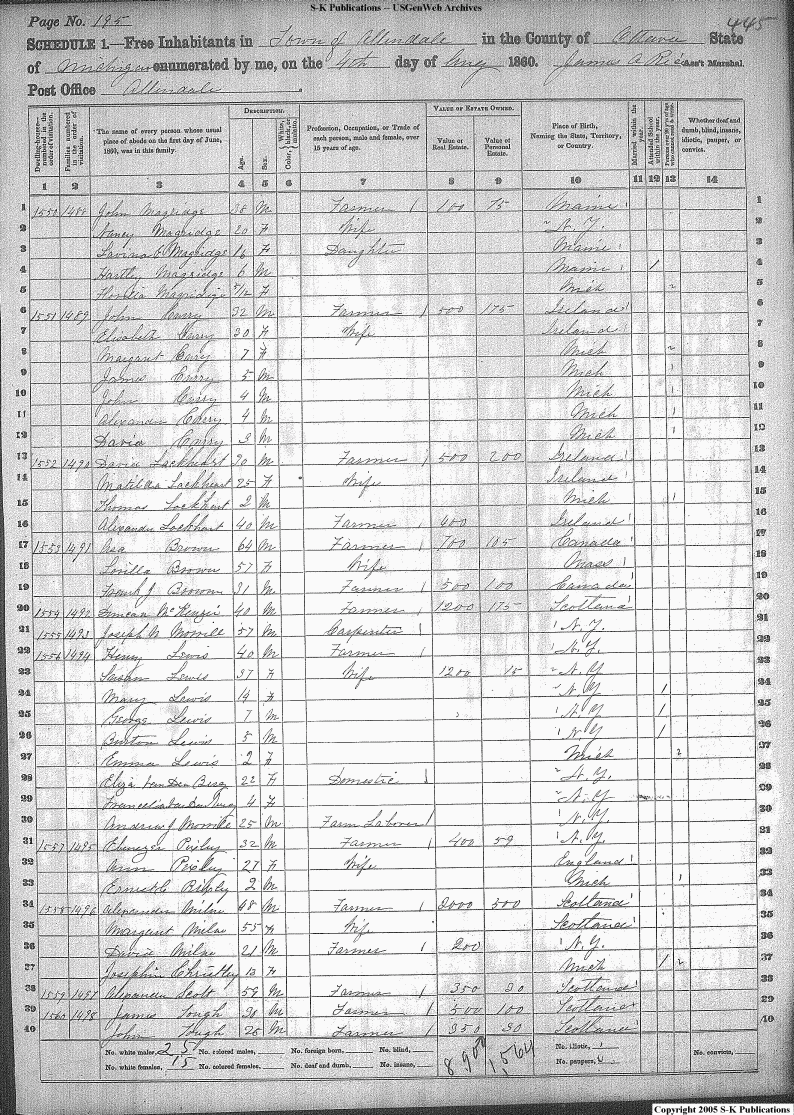 S-K Publications – USGenWeb Archives
Page No. 195
445
SCHEDULE 1.—Free Inhabitants in Town of Allendale in the County of Ottawa State
of Michigan enumerated by me, on the 4th day of 1860. James A Ass't Marshal.
Post Office Allendale
Dwelling-houses—numbered in the order of visitation.
Families numbered in the order of visitation.
The name of every person whose usual place of abode on the first day of June, 1860, was in this family.
DESCRIPTION.
Age.
Sex.
Color, White, black, or mulatto.
Profession, Occupation, or Trade of each person, male and female, over 15 years of age.
VALUE OF ESTATE OWNED.
Value of Real Estate.
Value of Personal Estate.
Place of Birth, Naming the State, Territory, or Country.
Married within the year.
Attended School within the year.
Persons over 20 y'rs of age who cannot read & write.
Whether deaf and dumb, blind, insane, idiotic, pauper, or convict.
1 2 3 4 5 6 7 8 9 10 11 12 13 14
1 1550 1488 John Magridge 38 M Farmer 1 100 75 Maine 1
2 Nancy Magridge 20 F Wife N.Y. 2
3 Lavina Magridge 16 F Daughter Maine 3
4 Hartley Magridge 6 M Maine 1 4
5 Magridge /12 F Mich 5
6 1551 1489 John Curry 32 M Farmer 1 500 175 Ireland 6
7 Elisabeth Curry 30 F Wife Ireland 7
8 Margaret Curry 7 F Mich 8
9 James Curry 5 M Mich 9
10 John Curry 4 M Mich 10
11 Alexander Curry 4 M Mich 11
12 David Curry 3 M Mich 12
13 1552 1490 David Lockheart 30 M Farmer 1 500 200 Ireland 13
14 Matilda Lockheart 25 F Wife Ireland 14
15 Thomas Lockhart 2 M Mich 15
16 Alexander Lockhart 40 M Farmer 1 400 Ireland 16
17 1553 1491 Asa Brown 64 M Farmer 1 700 105 Canada 17
18 Brown 57 F Wife Mass 18
19 Brown 31 M Farmer 1 500 100 Canada 19
20 1554 1492 Duncan McKenzie 40 M Farmer 1 1200 175 Scotland 20
21 1555 1493 Joseph N Morrill 57 M Carpenter 1 N.Y. 21
22 1556 1494 Henry Lewis 40 M Farmer 1 N.Y. 22
23 Susan Lewis 37 F Wife 1200 15 N.Y 23
24 Mary Lewis 14 F N.Y 1 24
25 George Lewis 7 M N.Y 1 25
26 Burton Lewis 5 M N.Y 1 26
27 Emma Lewis 2 F Mich 2 27
28 Eliza Van Den Berg 22 F Domestic 1 N.Y. 28
29 4 F N.Y 29
30 Andrew J 25 M Farm Laborer 1 N.Y. 30
31 1557 1495 Ebenezer Pixley 32 M Farmer 1 400 59 N.Y 31
32 Ann Pixley 27 F Wife England 32
33 2 M Mich 33
34 1558 1496 Alexander Milne 48 M Farmer 1 2000 500 Scotland 34
35 Margaret Milne 55 F Wife Scotland 35
36 David Milne 21 M Farmer 1 200 N.Y. 36
37 Josephin Christley 13 F Mich 1 2 37
38 1559 1497 Alexander Scott 59 M Farmer 1 350 30 Scotland 38
39 1560 1498 James Tough 38 M Farmer 1 500 100 Scotland 39
40 John Tough 28 M Farmer 1 350 30 Scotland 40
No. white males, 25 No. colored males, No. foreign born, No. blind, 8900 1564 No. idiotic, No. convicts,
No. white females, 15 No. colored females, No. deaf and dumb, No. insane, No. paupers,
Copyright 2005 S-K Publications